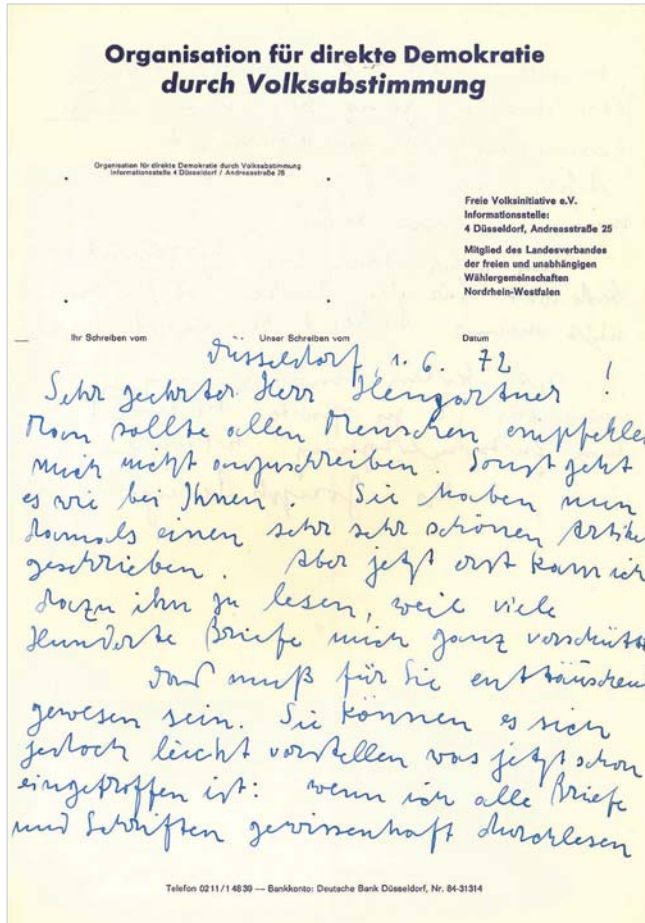 Organisation für direkte Demokratie
durch Volksabstimmung
Organisation für direkte Demokratie durch Volksabstimmung
Informationsstelle 4 Düsseldorf / Andreasstraße 25
Freie Volksinitiative e.V.
Informationsstelle:
4 Düsseldorf, Andreasstraße 25
Mitglied des Landesverbandes
der freien und unabhängigen
Wählergemeinschaften
Nordrhein-Westfalen
Ihr Schreiben vom Unser Schreiben vom Datum
Düsseldorf, 1. 6. 72
Sehr geehrter Herr Hengartner !
Man sollte allen Menschen empfehlen
mich nicht anzuschreiben. Sonst geht
es wie bei Ihnen. Sie haben nun
damals einen sehr sehr schönen Artikel
geschrieben. Aber jetzt erst kam ich
dazu ihn zu lesen, weil viele
Hunderte Briefe mich ganz verschütt
das muß für Sie enttäuschen
gewesen sein. Sie können es sich
jedoch leicht vorstellen was jetzt schon
eingetroffen ist: wenn ich alle Briefe
und Schriften gewissenhaft durchlesen
Telefon 0211/14839 — Bankkonto: Deutsche Bank Düsseldorf, Nr. 84-31314